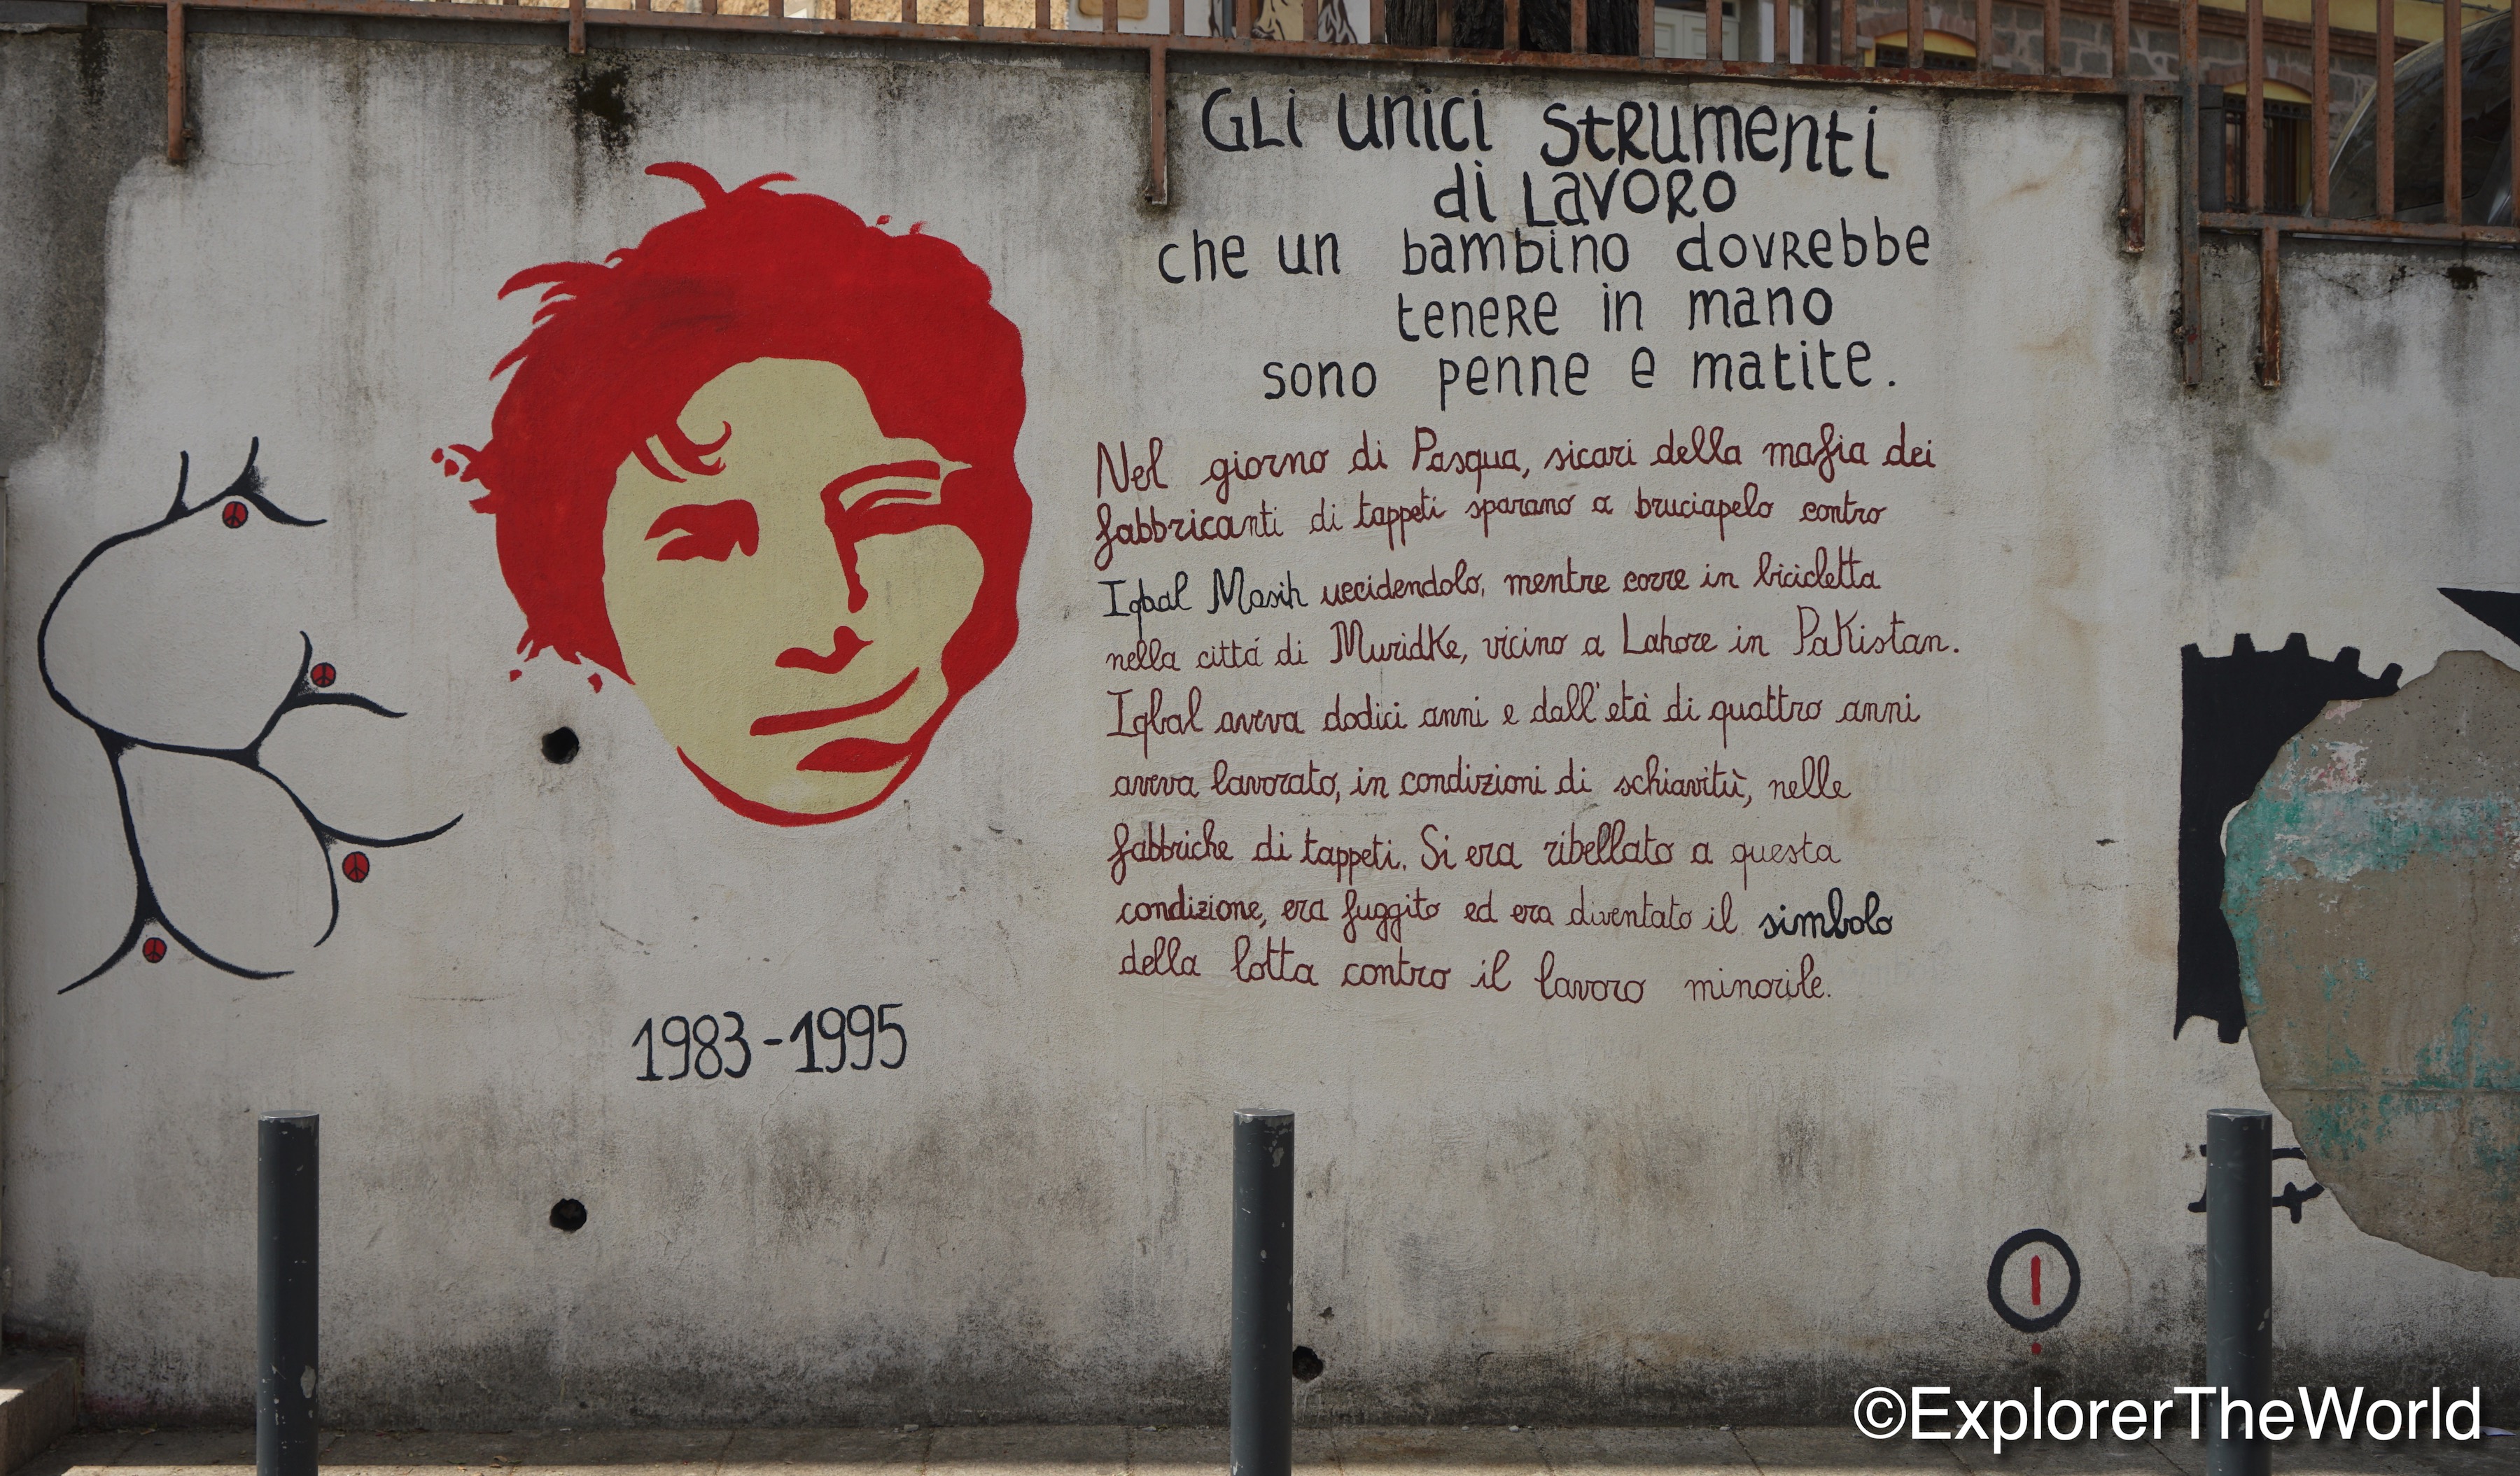 GLi unici StRumenti
di LavoRo
che un bambino dovRebbe
teneRe in mano
sono penne e matite.
Nel giorno di Pasqua, sicari della mafia dei
fabbricanti di tappeti sparano a bruciapelo contro
Iqbal Masih uccidendolo, mentre corre in bicicletta
nella cittá di Muridke, vicino a Lahore in PaKistan.
Iqbal aveva dodici anni e dall'età di quattro anni
aveva lavorato, in condizioni di schiavitù, nelle
fabbriche di tappeti. Si era ribellato a questa
condizione, era fuggito ed era diventato il simbolo
della lotta contro il lavoro minorile.
1983-1995
©ExplorerTheWorld